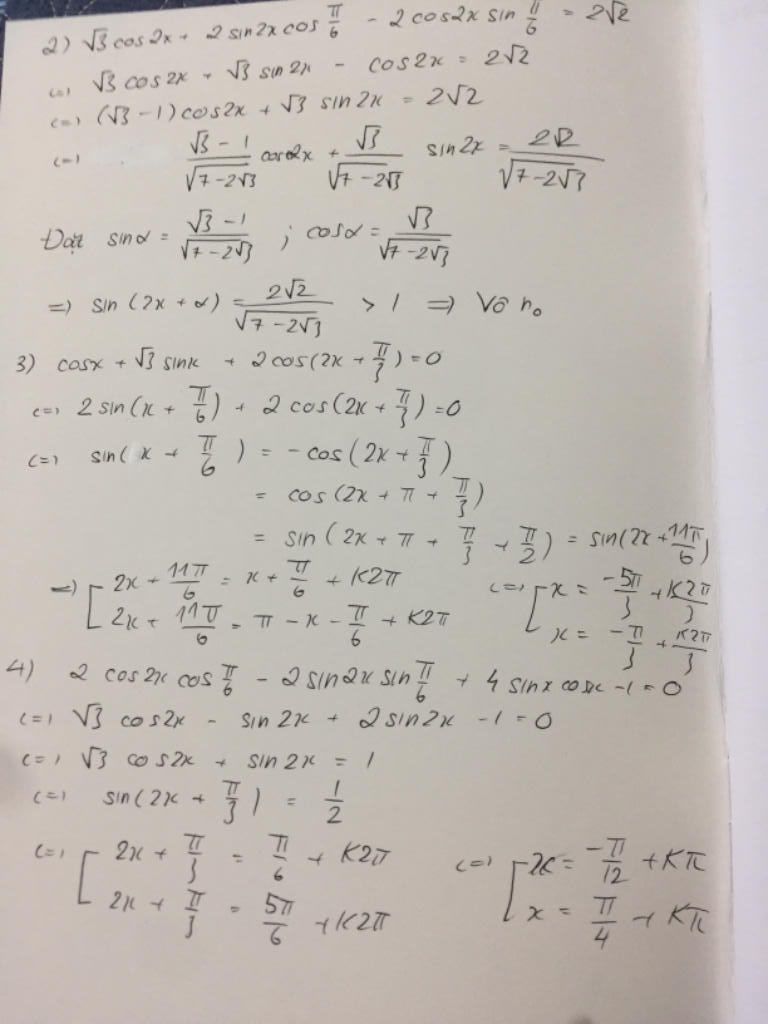 2) √3 cos2x + 2 sin2x cos π/6 - 2 cos2x sin π/6 = 2√2
<=> √3 cos2x + √3 sin2x - cos2x = 2√2
<=> (√3 - 1) cos2x + √3 sin2x = 2√2
<=> (√3 - 1)/√(7 - 2√3) cos2x + √3/√(7 - 2√3) sin2x = 2√2/√(7 - 2√3)
Đặt sinα = (√3 - 1)/√(7 - 2√3) ; cosα = √3/√(7 - 2√3)
=> sin(2x + α) = 2√2/√(7 - 2√3) > 1 => Vô no
3) cosx + √3 sinx + 2 cos(2x + π/3) = 0
<=> 2 sin(x + π/6) + 2 cos(2x + π/3) = 0
<=> sin(x + π/6) = - cos(2x + π/3)
= cos(2x + π + π/3)
= sin(2x + π + π/3 + π/2) = sin(2x + 11π/6)
=> [ 2x + 11π/6 = x + π/6 + K2π <=> [ x = -5π/3 + K2π/3
2x + 11π/6 = π - x - π/6 + K2π x = -π/3 + K2π/3
4) 2 cos2x cos π/6 - 2 sin2x sin π/6 + 4 sinx cosx - 1 = 0
<=> √3 cos2x - sin2x + 2 sin2x - 1 = 0
<=> √3 cos2x + sin2x = 1
<=> sin(2x + π/3) = 1/2
<=> [ 2x + π/3 = π/6 + K2π <=> [ x = -π/12 + Kπ
2x + π/3 = 5π/6 + K2π x = π/4 + Kπ